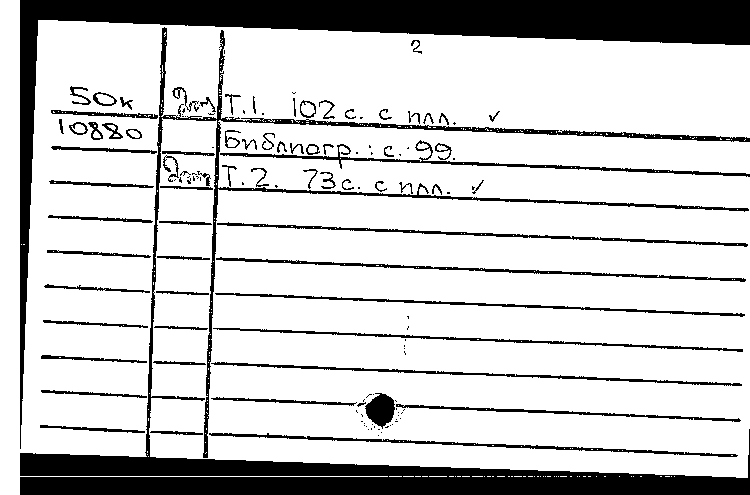 2
50к Т.1. 102 с. с илл. ✓
10880 Библиогр.: с. 99.
Т.2. 73 с. с илл. ✓